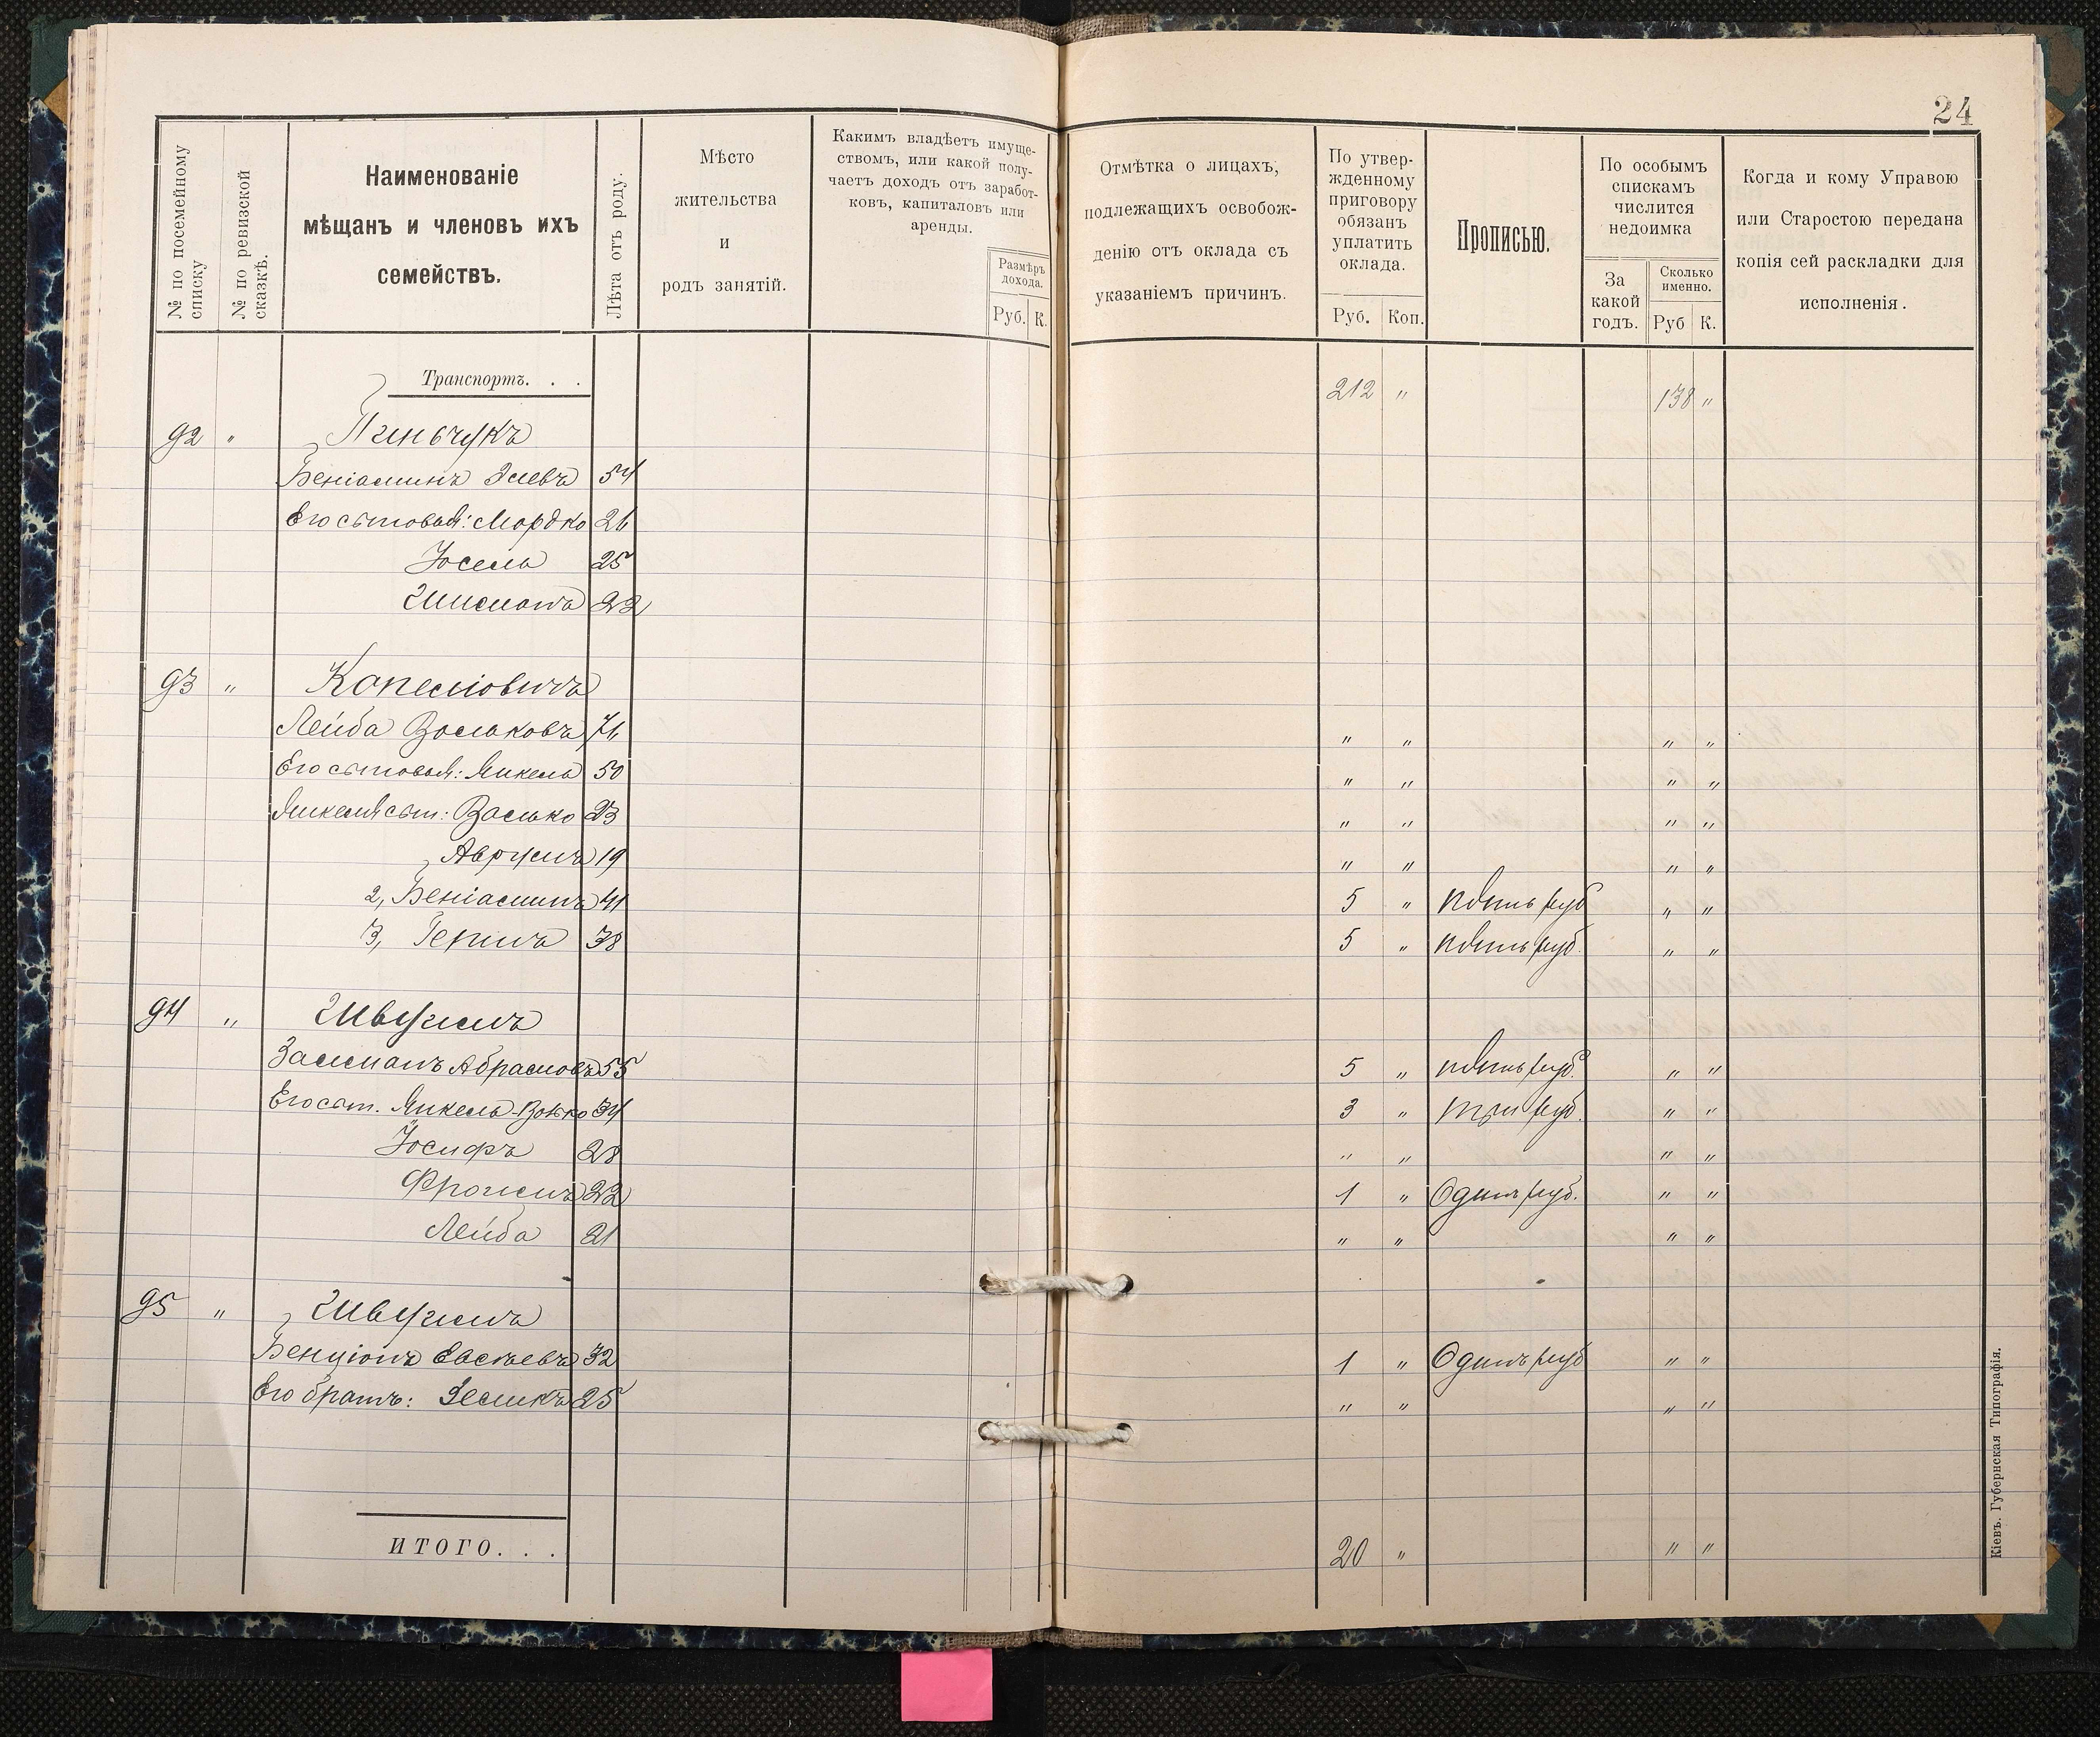 24
№ по посемейному списку
№ по ревизской сказкѣ.
Наименованіе
мѣщанъ и членовъ ихъ
семействъ.
Лѣта отъ роду.
Мѣсто
жительства
и
родъ занятій.
Какимъ владѣетъ имуще-
ствомъ, или какой полу-
чаетъ доходъ отъ заработ-
ковъ, капиталовъ или
аренды.
Размѣръ
дохода.
Руб. К.
Отмѣтка о лицахъ,
подлежащихъ освобож-
денію отъ оклада съ
указаніемъ причинъ.
По утвер-
жденному
приговору
обязанъ
уплатить
оклада.
Руб. Коп.
Прописью.
По особымъ
спискамъ
числится
недоимка
За
какой
годъ.
Сколько
именно.
Руб К.
Когда и кому Управою
или Старостою передана
копія сей раскладки для
исполненія.
Транспортъ. . . 212 " 138 "
92 " Пиньчукъ
Беніаминъ Элевъ 54
Его сыновья: Мордко 26
Іосель 25
Шлиома 22
93 " Копеліовичъ
Лейба Вольковъ 71 " " " "
Его сыновья: Янкель 50 " " " "
Янкеля сын: Волько 23 " " " "
Аврумъ 19 " " " "
2, Беніаминъ 41 5 " пять руб " "
3, Гершъ 38 5 " пять руб. " "
94 " Швуимъ
Залманъ Абрамовъ 55 5 " пять руб. " "
Его сын. Янкель-Волько 34 3 " три руб. " "
Іосифъ 28 " " " "
Фроимъ 22 1 " Одинъ руб. " "
Лейба 21 " " " "
95 " Швуимъ
Бенціонъ Евсѣевъ 32 1 " Одинъ руб " "
Его братъ: Зеликъ 25 " " " "
ИТОГО. . . 20 " " "
Кіевъ. Губернская Типографія.